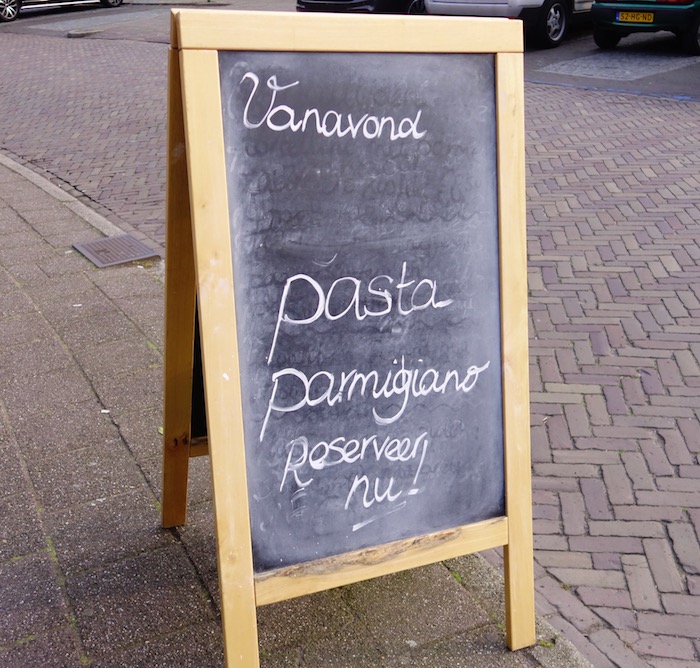 52-HG-ND
Vanavond
pasta
parmigiano
Reserveer
nu!